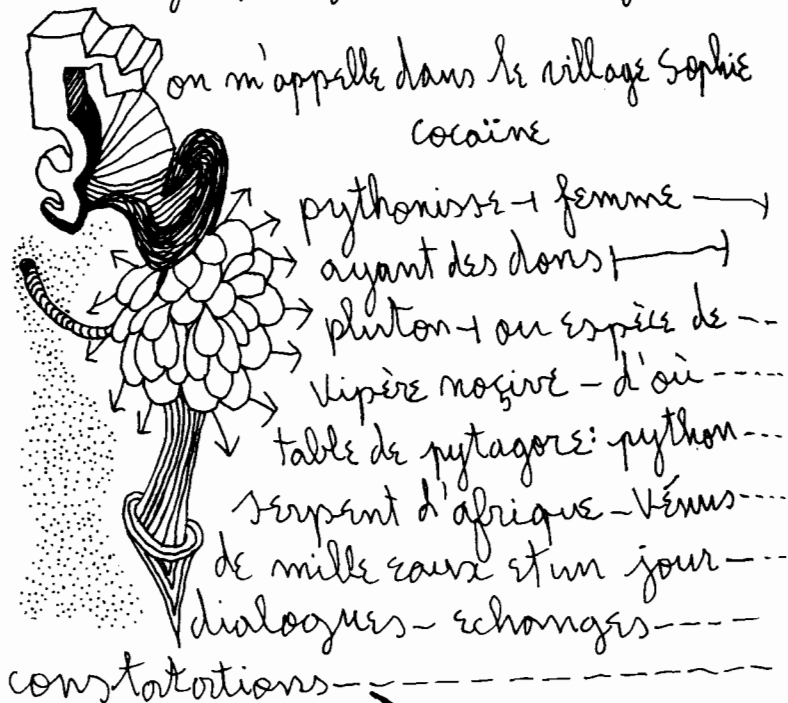 on m'appelle dans le village Sophie
cocaïne
pythonisse → femme —
ayant des dons —
pluton → ou espèce de --
vipère noçive – d'où ----
table de pytagore: python---
serpent d'afrique – Vénus----
de mille eaux et un jour ----
dialogues – echanges----
constatations-------------